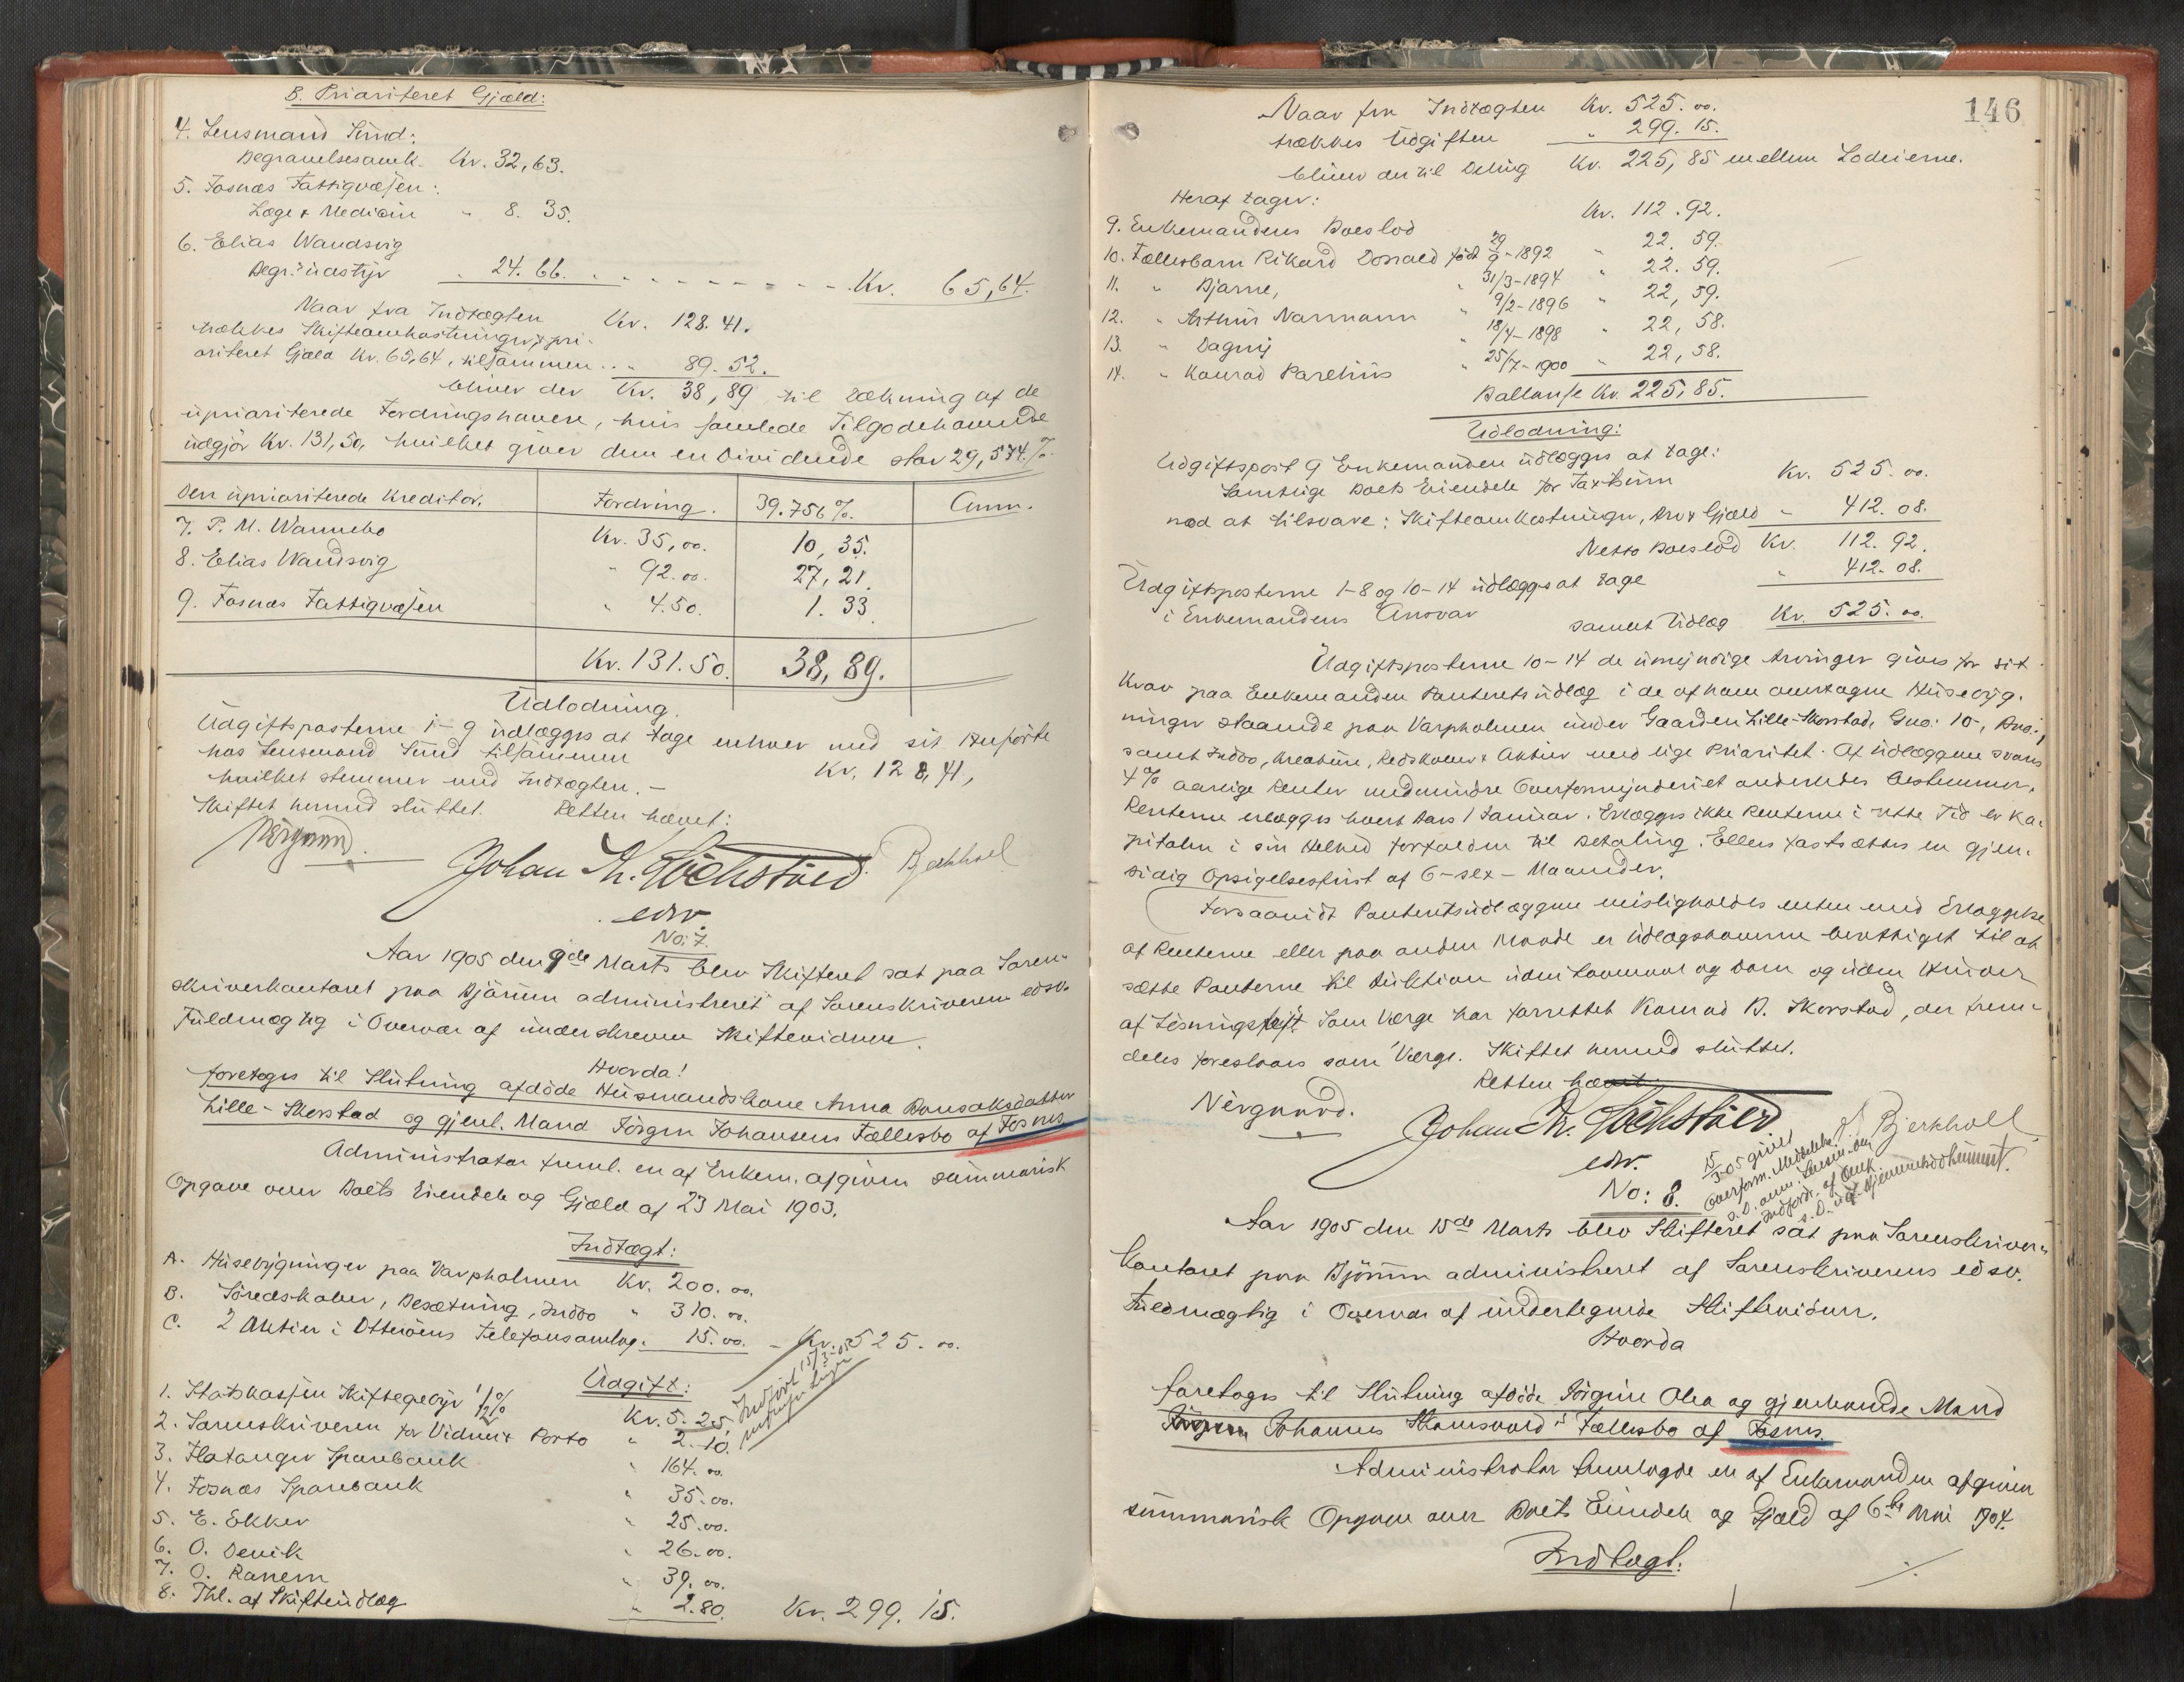 B. Prioriteret Gjæld:
4. Lensmand Sund:
Begravelsesomk. Kr. 32,63.
5. Fosnæs Fattigvæsen:
Læge & Medicin " 8. 35.
6. Elias Wandsvig
Begr. udstyr " 24. 66. Kr. 65,64.
Naar fra Indtægten Kr. 128. 41.
trækkes Skifteomkostninger & pri-
oriteret Gjæld Kr. 65,64, tilsammen " 89. 52.
bliver der Kr. 38,89 til Dækning af de
uprioriterede Fordringshavere, hvis samlede Tilgodehavende
udgjør Kr. 131,50, hvilket giver dem en Dividende stor 29,574%.
Den uprioriterede Kreditor. Fordring. 39.756%. Anm.
7. P. M. Wannebo Kr. 35,00. 10,35.
8. Elias Wandsvig " 92.00. 27,21.
9. Fosnæs Fattigvæsen " 4.50. 1. 33.
Kr. 131.50. 38,89.
Udlodning.
Udgiftsposterne 1-9 udlægges at tage enhver med sit Anførte
hos Lensmand Sund tilsammen Kr. 128,41,
hvilket stemmer med Indtægten. —
Skiftet hermed sluttet. Retten hævet:
Nërgaard. Johan Th. Löchstöer Bjerkholl
edsv.
No: 7.
Aar 1905 den 9de Marts blev Skifteret sat paa Soren-
skriverkontoret paa Bjørum administreret af Sorenskriverens edsv.
Fuldmægtig i Overvær af underskrevne Skiftevidner.
Hvorda!
foretoges til Slutning afdøde Husmandskone Anna Bonsaksdatter
Lille-Skorstad og gjenl. Mand Jørgen Johansens Fællesbo af Fosnes
Administrator freml. en af Enkem. afgiven summarisk
Opgave over Boets Eiendele og Gjæld af 23 Mai 1903.
Indtægt:
A. Husebygninger paa Varpholmen Kr. 200. 00.
B. Søredskaber, Besætning, Indbo " 310. 00.
C. 2 Aktier i Otterøens Telefonsamlag. 15.00. - Kr. 525. 00.
Indført 15/3-05
Udgift:
1. Statskassen Skiftegebyr 1/2% Kr. 5. 25.
2. Sorenskriveren for Vidner & Porto " 2. 10.
3. Flatanger Sparebank " 164. 00.
4. Fosnæs Sparebank " 35.00.
5. E. Ekker " 25.00.
6. O. Devik " 26.00.
7. O. Ranem " 39. 00.
8. Thl. af Skifteudlæg " 2.80. Kr. 299. 15.
146
Naar fra Indtægten Kr. 525. 00.
trækkes Udgiften " 299. 15.
bliver der til Deling Kr. 225,85 mellem Lodeierne.
Heraf tager:
9. Enkemandens Boeslod Kr. 112. 92.
10. Fællesbarn Rikard Donald født 29/9-1892 " 22. 59.
11. " Bjarne, " 31/3-1894 " 22. 59.
12. " Arthur Normann " 9/2-1896 " 22, 59.
13. " Dagny " 18/4-1898 " 22, 58.
14. " Konrad Parelius " 25/7-1900 " 22, 58.
Ballanse Kr. 225,85.
Udlodning:
Udgiftspost 9 Enkemanden udlægges at tage:
Samtlige Boets Eiendele for Taxtsum Kr. 525. 00.
mod at tilsvare: Skifteomkostninger, Arv & Gjæld " 412. 08.
Netto Boeslod Kr. 112. 92.
Udgiftsposterne 1-8 og 10-14 udlægges at tage
i Enkemandens Ansvar " 412. 08.
samlet Udlæg Kr. 525. 00.
Udgiftsposterne 10-14 de umyndige Arvinger gives for sit
Krav paa Enkemanden Panteretsudlæg i de af ham overtagne Husebyg-
ninger staaende paa Varpholmen under Gaarden Lille-Skorstad, Gno: 10, Bno: 1
samt Indbo, Kreature, Redskaber & Aktier med lige Prioritet. Af Udlæggene svares
4% aarlige Renter medmindre Overformynderiet anderledes bestemmer.
Renterne erlægges hvert Aars 1 Januar. Erlægges ikke Renterne i rette Tid er Ka-
pitalen i sin Helhed forfalden til Betaling. Ellers fastsættes en gjen-
sidig Opsigelsesfrist af 6-sex-Maaneder.
Forsaavidt Panteretsudlæggene misligholdes enten med Erlæggelse
af Renterne eller paa anden Maade er Udlægshaverne berettiget til at
sætte Panterne til Auktion uden Lovmaal og Dom og uden Hinder
af Løsningsfrist. Som Værge har forrettet Konrad B. Skorstad, der frem-
deles foreslaaes som Værge. Skiftet hermed sluttet.
Retten hævet:
Nërgaard. Johan Th. Löchstöer Bjerkholl
edsv.
No: 8.
Aar 1905 den 15de Marts blev Skifteret sat paa Sorenskriver-
kontoret paa Bjørum administreret af Sorenskriverens edsv.
Fuldmægtig i Overvær af undertegnede Skiftevidner.
Hvorda
foretoges til Slutning afdøde Jørgine Olea og gjenlevende Mand
Johannes Fællesbo af Fosnes.
Administrator fremlagde en af Enkemanden afgiven
summarisk Opgave over Boets Eiendele og Gjæld af 6te Mai 1904.
Indtægt.